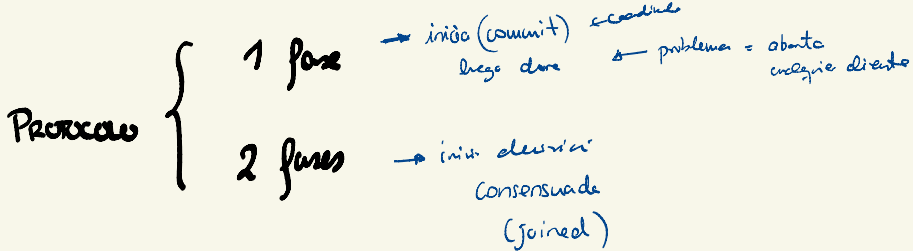 PROTOCOLO
1 fase → inicia (commit) ←
luego done ← problema = aborta
cualquier cliente
2 fases → inicia decisión
consensuada
(joined)